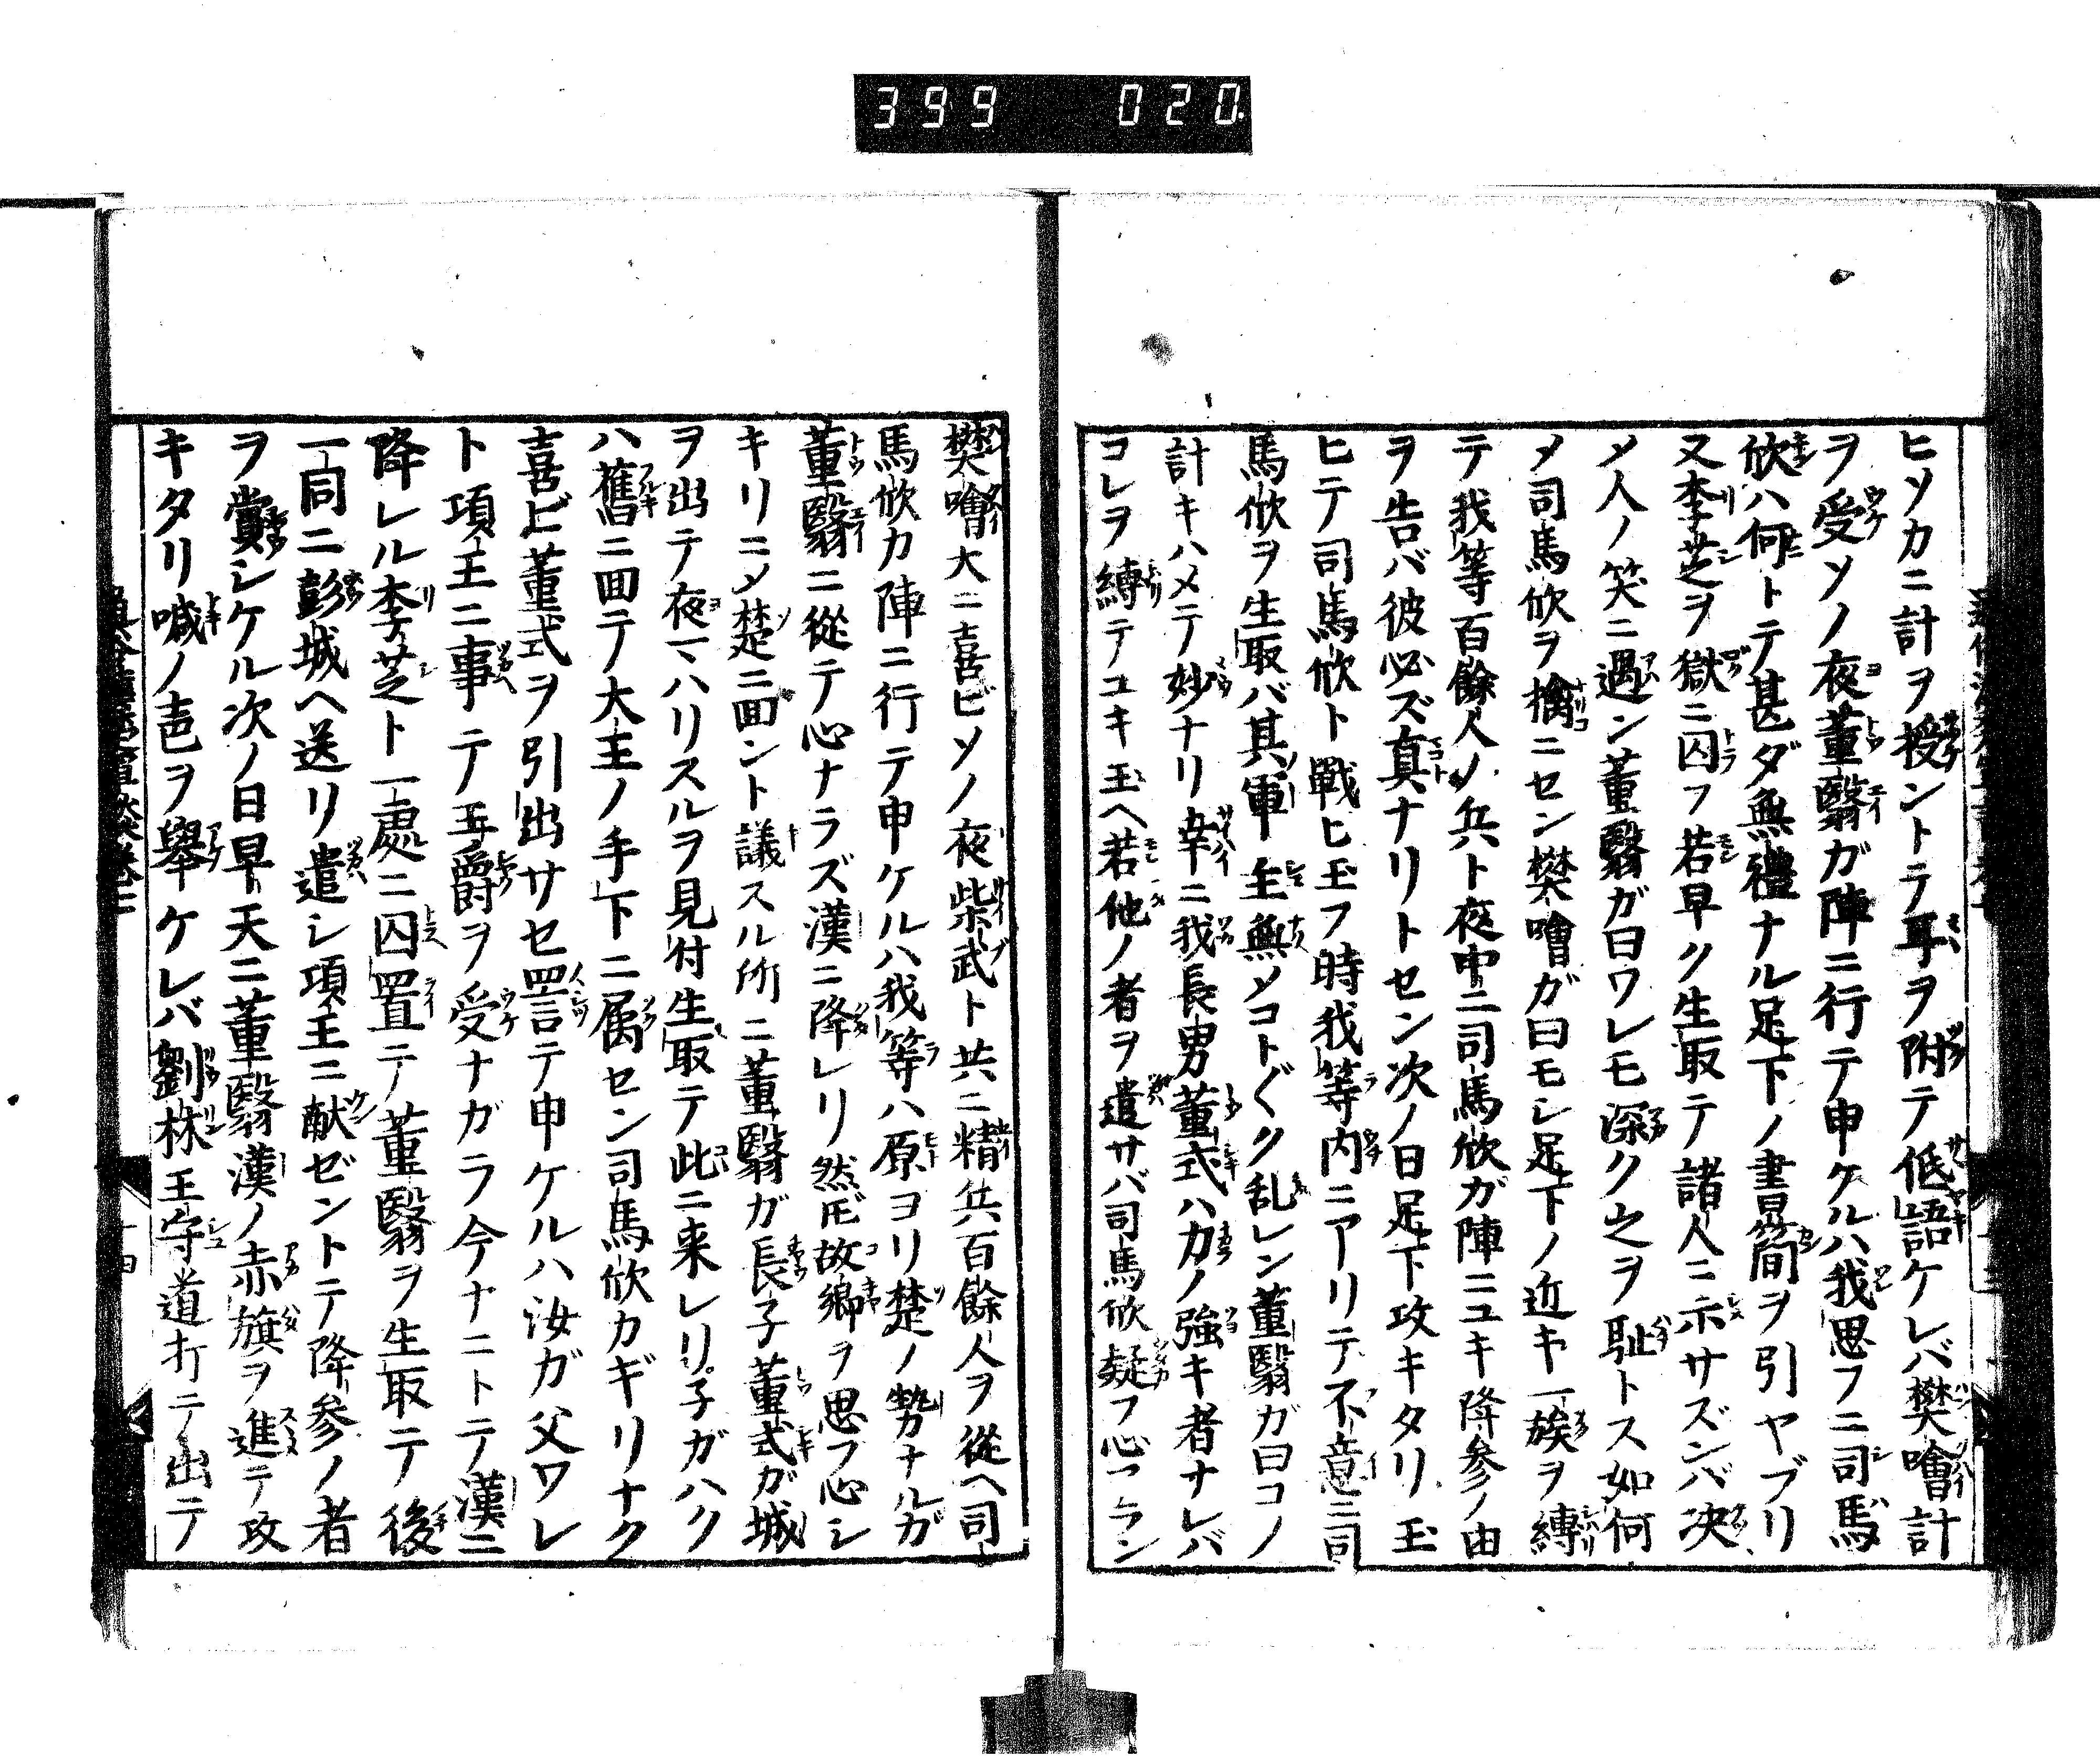 399 020
ヒソカニ計ヲ授ントテ耳ヲ附テ低語ケレバ樊噲計
ヲ受ソノ夜董翳ガ陣ニ行テ申ケルハ我思フニ司馬
欣ハ何トテ甚ダ無禮ナル足下ノ書簡ヲ引ヤブリ
又李芝ヲ獄ニ囚フ若早ク生取テ諸人ニ示サズンバ决
メ人ノ笑ニ遇ン董翳ガ曰ワレモ深ク之ヲ耻トス如何
メ司馬欣ヲ擒ニセン樊噲ガ曰モシ足下ノ近キ一族ヲ縛
テ我等百餘人ノ兵ト夜中ニ司馬欣ガ陣ニユキ降参ノ由
ヲ告バ彼必ズ真ナリトセン次ノ日足下攻キタリ玉
ヒテ司馬欣ト戰ヒ玉フ時我等内ニアリテ不意ニ司
馬欣ヲ生取バ其軍主無メコト〲ク乱レン董翳ガ曰コノ
計キハメテ妙ナリ幸ニ我長男董式ハ力ノ強キ者ナレバ
コレヲ縛テユキ玉ヘ若他ノ者ヲ遣サバ司馬欣疑フ心アラン
樊噲大ニ喜ビソノ夜柴武ト共ニ精兵百餘人ヲ從ヘ司
馬欣カ陣ニ行テ申ケルハ我等ハ原ヨリ楚ノ勢ナルガ
董翳ニ從テ心ナラズ漢ニ降レリ然𪜈故郷ヲ思フ心シ
キリニメ楚ニ面ント議スル所ニ董翳ガ長子董式ガ城
ヲ出テ夜マハリスルヲ見付生取テ此ニ来レリ子ガハク
ハ舊ニ面テ大王ノ手下ニ属セン司馬欣カギリナク
喜ビ董式ヲ引出サセ詈テ申ケルハ汝ガ父ワレ
ト項王ニ事テ王爵ヲ受ナガラ今ナニトテ漢ニ
降レル李芝ト一處ニ囚置テ董翳ヲ生取テ後
一同ニ彭城ヘ送リ遣シ項王ニ献ゼントテ降参ノ者
ヲ賞シケル次ノ日早天ニ董翳漢ノ赤旗ヲ進テ攻
キタリ喊ノ声ヲ舉ケレバ劉林王守道打ニメ出テ